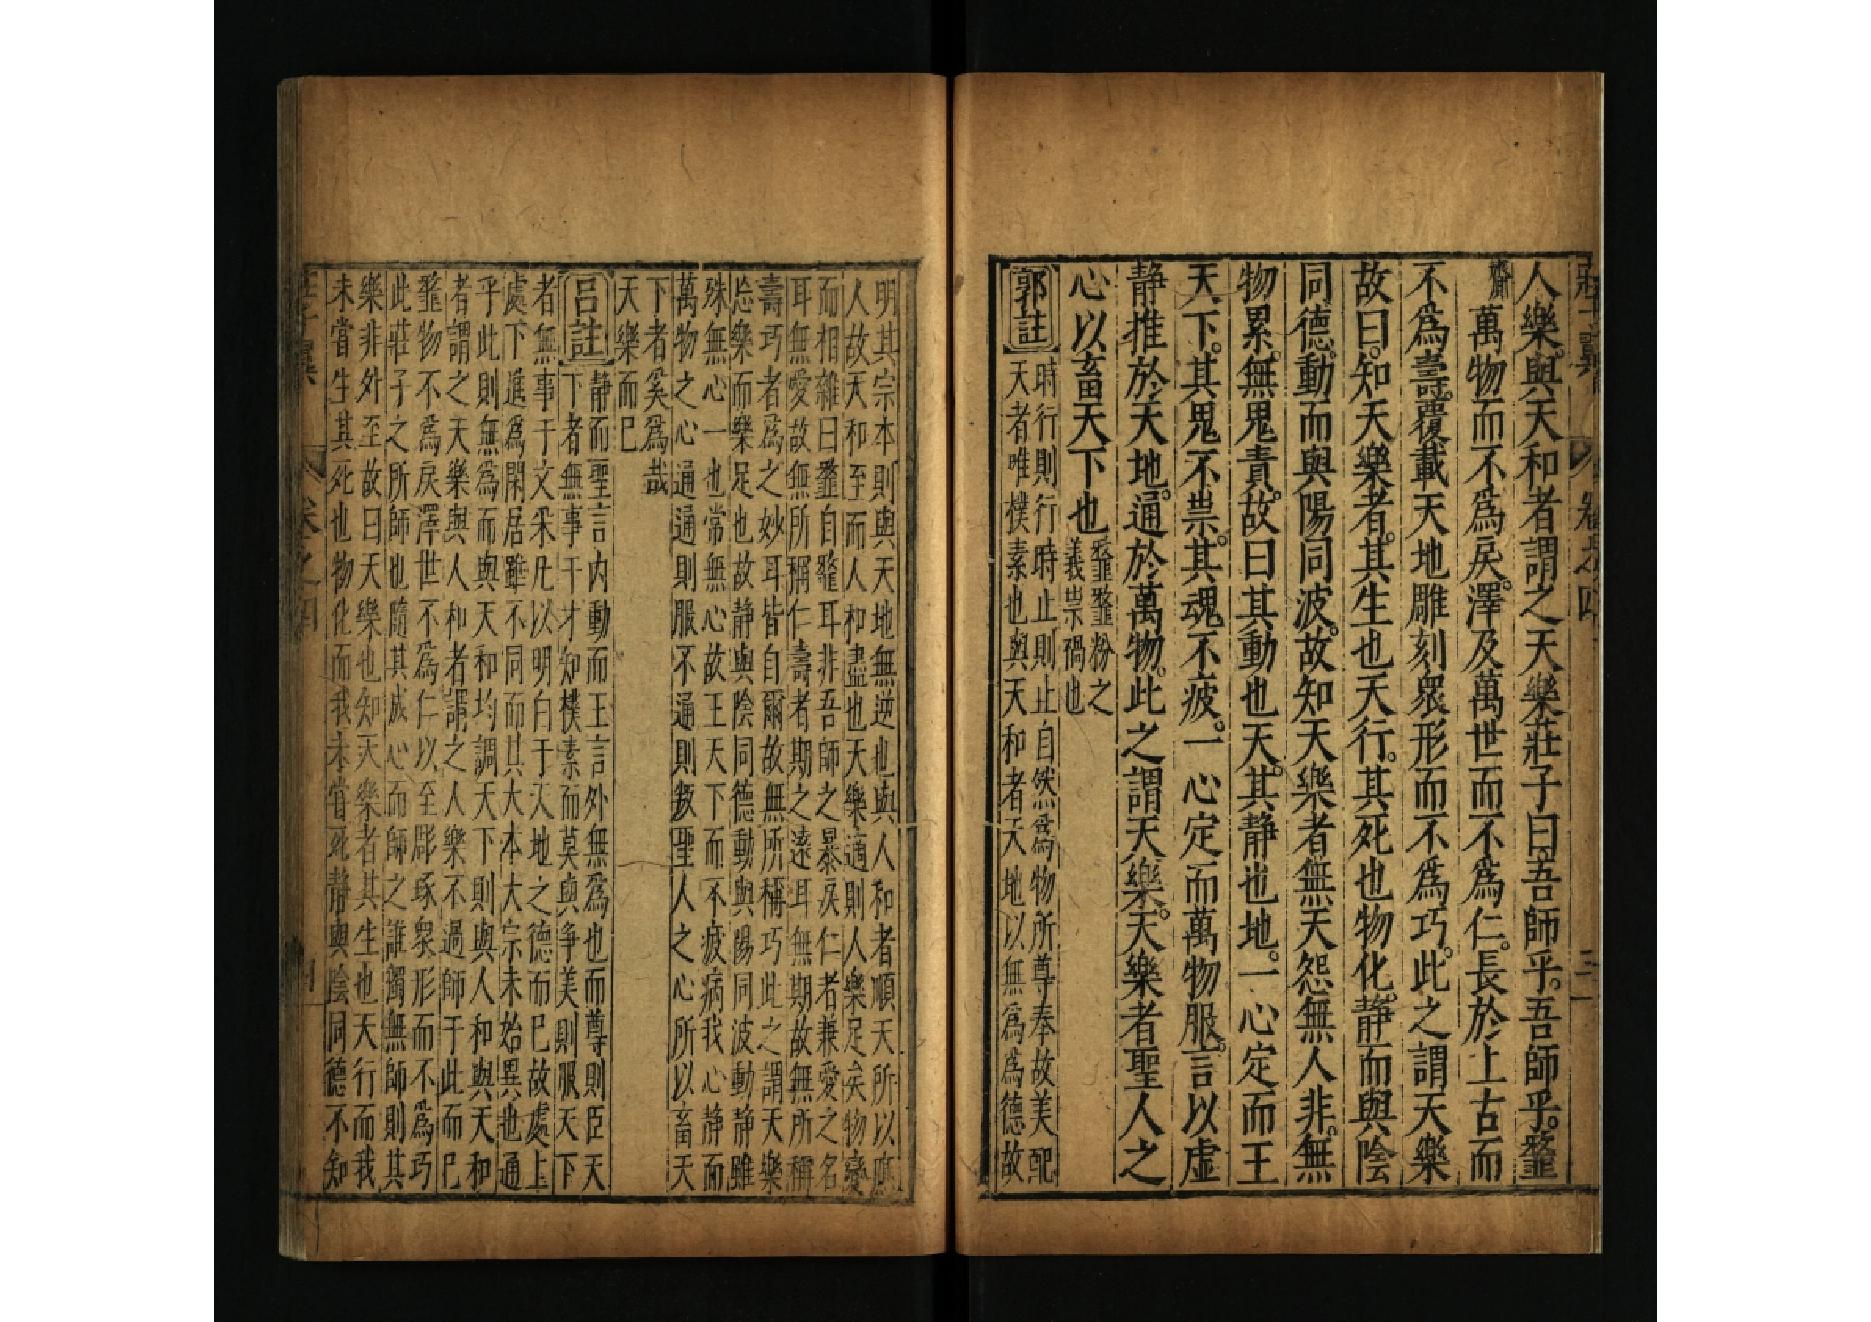 莊子翼 卷之四 三
人樂。與天和者謂之天樂莊子曰吾師乎。吾師乎。𩐎
齏
萬物而不爲戾。澤及萬世而不爲仁。長於上古而
不爲壽。覆載天地雕刻衆形而不爲巧。此之謂天樂
故曰。知天樂者。其生也天行。其死也物化。靜而與陰
同德。動而與陽同波。故知天樂者無天怨無人非。無
物累。無鬼責。故曰其動也天。其靜也地。一心定而王
天下。其鬼不祟。其魂不疲。一心定而萬物服。言以虛
靜推於天地。通於萬物。此之謂天樂。天樂者聖人之
心以畜天下也
𩐎𩐎粉之
義祟禍也
郭註
時行則行時止則止自然爲物所尊奉故美配
天者唯樸素也與天和者天地以無爲爲德故
明其宗本則與天地無逆也與人和者順天所以應
人故天和至而人和盡也天樂適則人樂足矣物變
而相雜曰𩐎自𩐎耳非吾師之暴戾仁者兼愛之名
耳無愛故無所稱仁壽者期之遠耳無期故無所稱
壽巧者爲之妙耳皆自爾故無所稱巧此之謂天樂
忘樂而樂足也故靜與陰同德動與陽同波動靜雖
殊無心一也常無心故王天下而不疲病我心靜而
萬物之心通通則服不通則叛聖人之心所以畜天
下者奚爲哉
天樂而已
呂註
靜而聖言內動而王言外無爲也而尊則臣天
下者無事于才知樸素而莫與爭美則服天下
者無事于文采凡以明白于天地之德而已故處上
處下進爲閑居雖不同而其大本大宗未始異也通
乎此則無爲而與天和均調天下則與人和與天和
者謂之天樂與人和者謂之人樂不過師于此而已
𩐎物不爲戾澤世不爲仁以至彫琢衆形而不爲巧
此莊子之所師也隨其成心而師之誰獨無師則其
樂非外至故曰天樂也知天樂者其生也天行而我
未嘗生其死也物化而我未嘗死靜與陰同德不知
莊子翼 卷之四 四